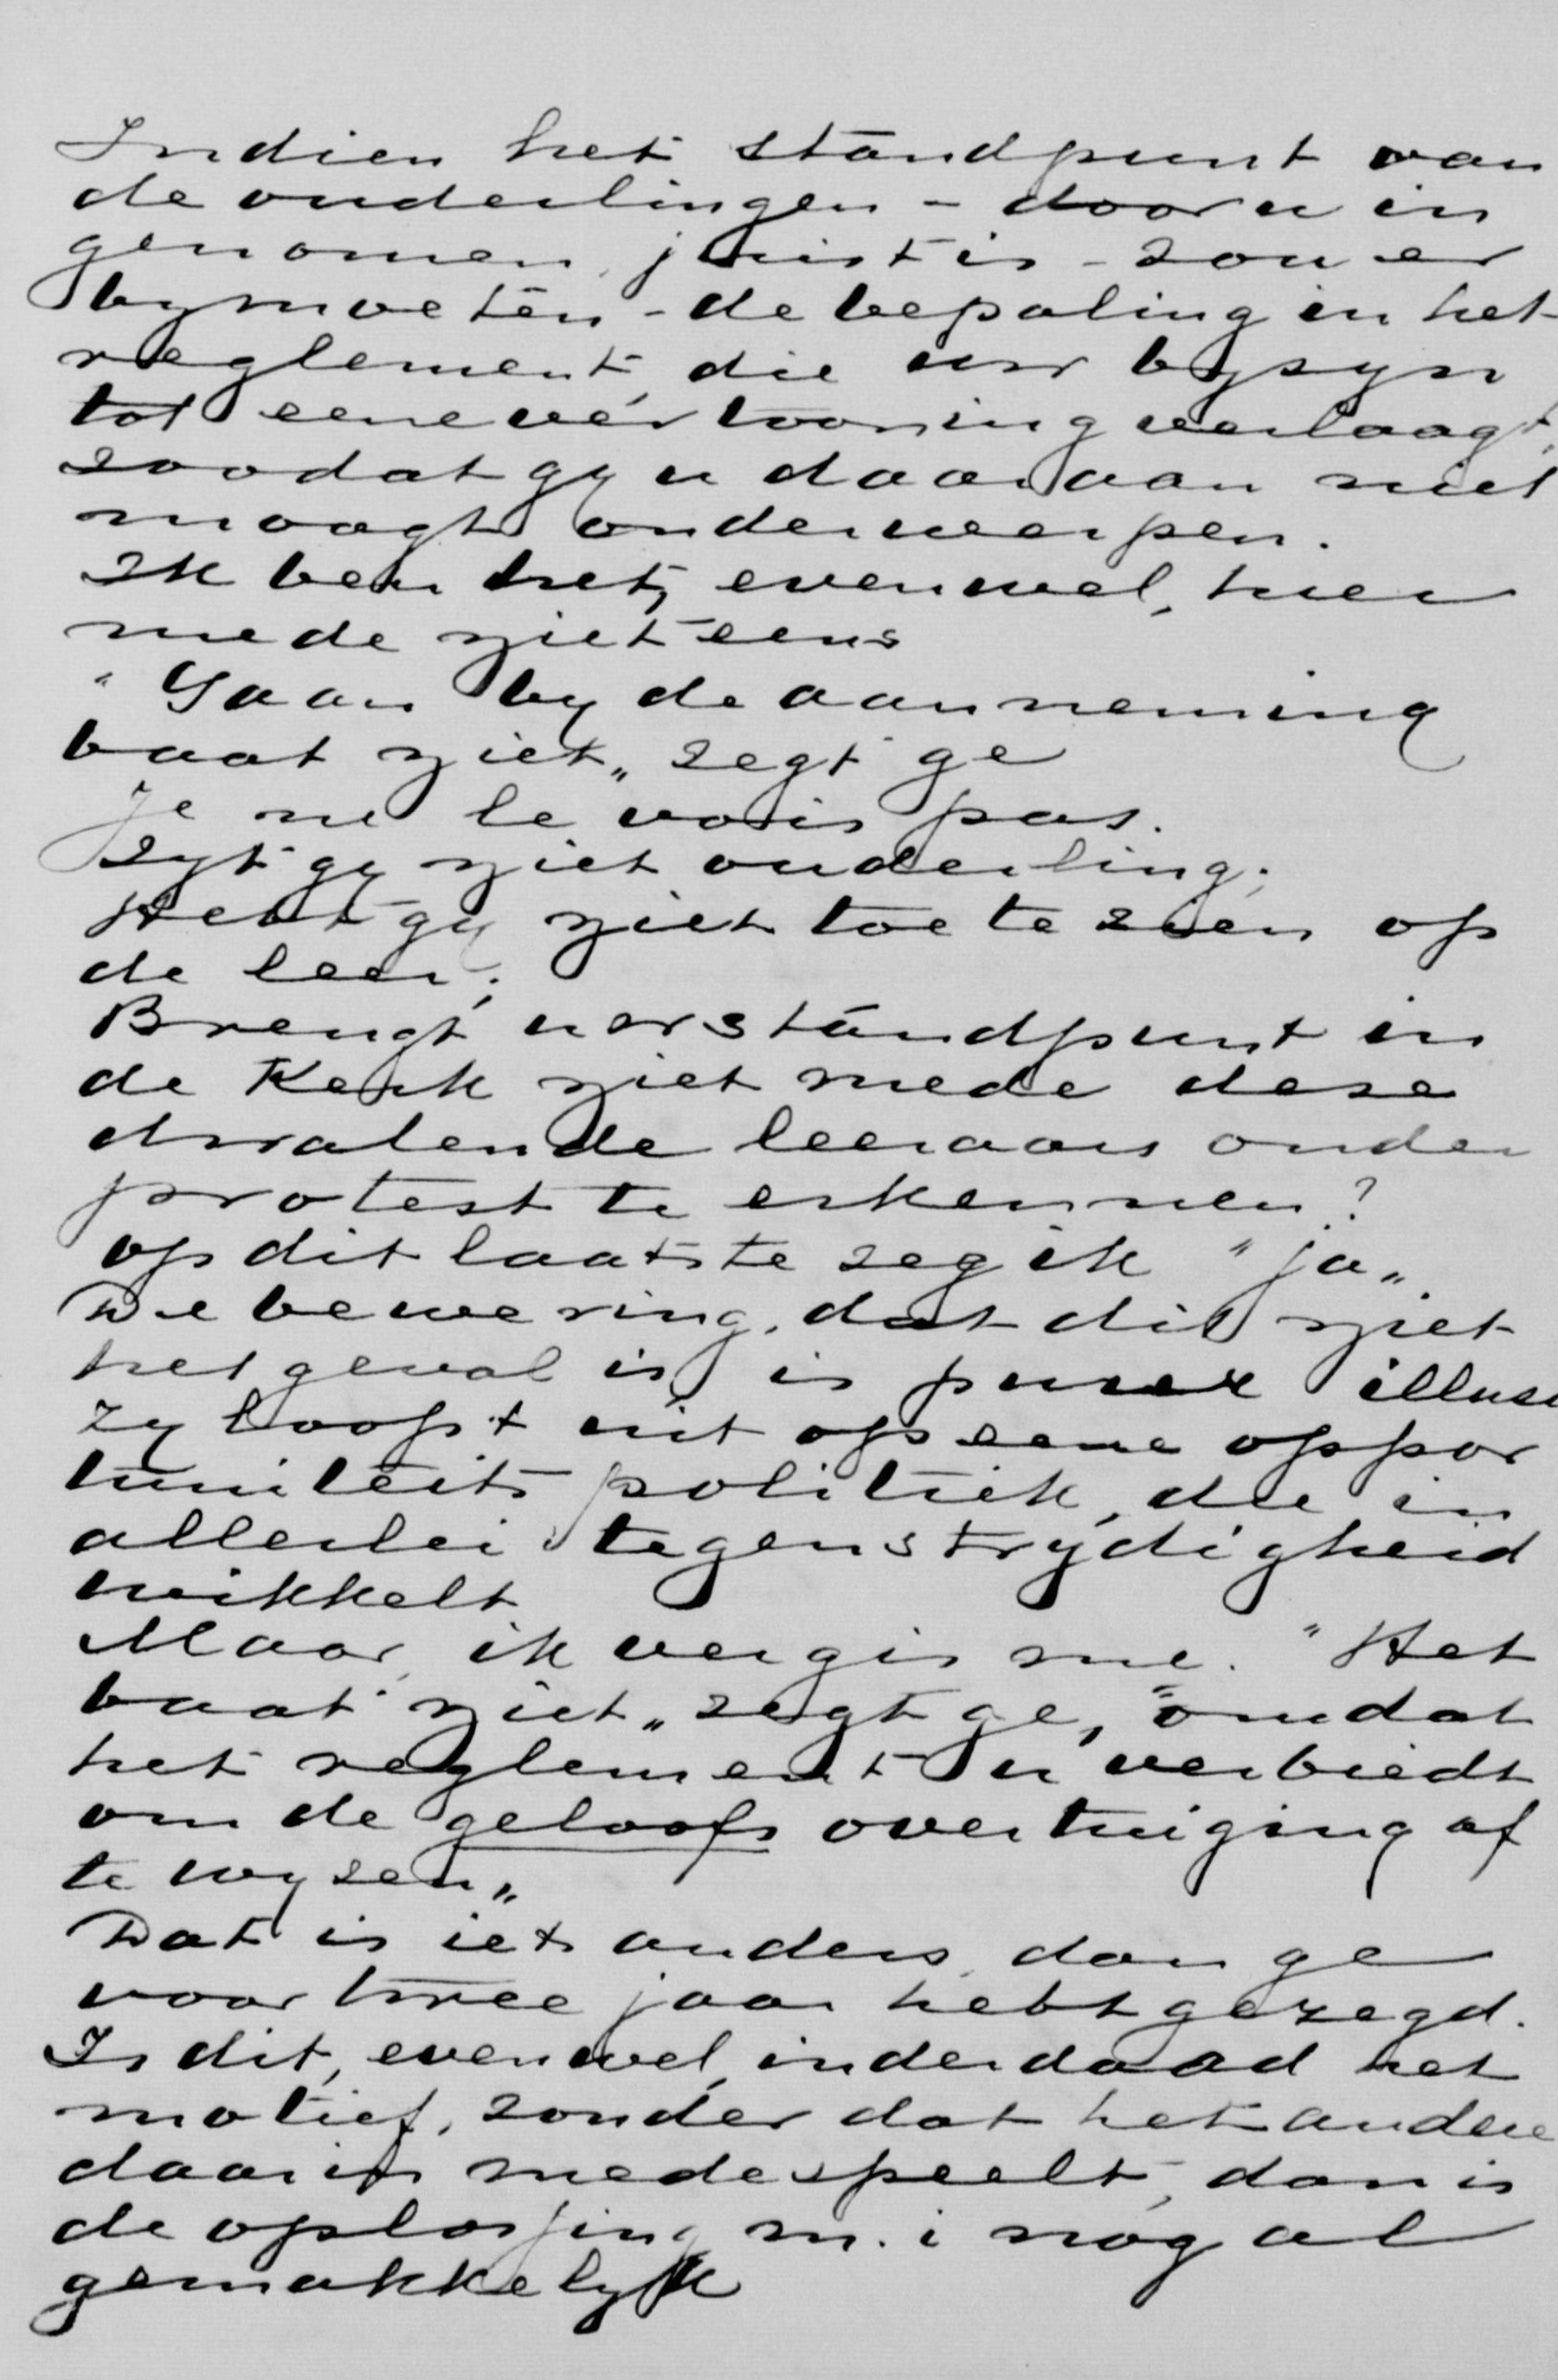 Indien het standpunt van
de ouderlingen - door u in
genomen, juist is - zou er
by moeten - de bepaling in het
reglement, die uw byzyn
tot eene vertooning verlaagt,
zoodat gy u daaraan niet
moogt onderwerpen.
Ik ben het, evenwel, hier
mede niet eens
"Gaan by de aanneming
baat niet„ zegt ge
Je ne le vois pas.
Zyt gy niet ouderling;
Hebt gy niet toe te zien op
de leer;
Brengt uw standpunt in
de Kerk niet mede deze
dwalende leeraars onder
protest te erkennen?
op dit laatste zeg ik "ja„
De bewering, dat dit niet
het geval is, is pure illusi
Zy loopt uit op eene oppor
tuniteits politiek, die in
allerlei tegenstrydigheid
wikkelt
Maar, ik vergis me. "Het
baat niet„ zegt ge, "omdat
het reglement u verbiedt
om de geloofs overtuiging af
te wyzen„
Dat is iets anders, dan ge
voor twee jaar hebt gezegd.
Is dit, evenwel, inderdaad het
motief, zonder dat het andere
daarin medespeelt, dan is
de oplossing m. i nog al
gemakkelyk